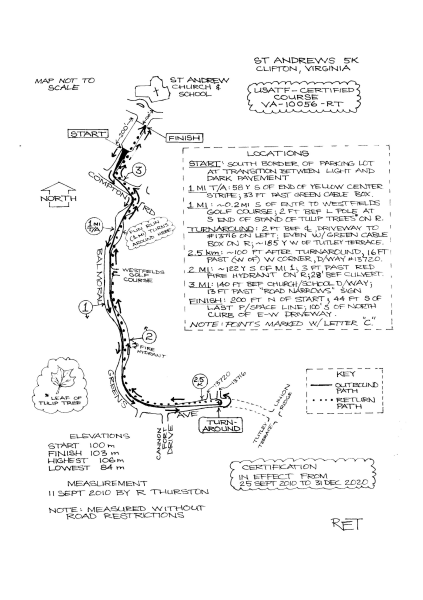 ST ANDREWS 5K
CLIFTON, VIRGINIA
USATF-CERTIFIED
COURSE
VA-10056-RT
MAP NOT TO
SCALE
ST ANDREW
CHURCH &
SCHOOL
200'
START
FINISH
3
COMPTON
RD
NORTH
1 MI
T/A
FUN RUN
(1 MI) TURNS
AROUND HERE
BALMORAL
WESTFIELDS
GOLF
COURSE
1
2
FIRE
HYDRANT
LEAF OF
TULIP TREE
GREENS
AVE
CANNON
FORT
DRIVE
2.5
K
13720
13716
TURN-
AROUND
TUTLEY
TERRACE
UNION
RIDGE
LOCATIONS
START: SOUTH BORDER OF PARKING LOT
AT TRANSITION BETWEEN LIGHT AND
DARK PAVEMENT
1 MI T/A: 58 Y S OF END OF YELLOW CENTER
STRIPE; 33 FT PAST GREEN CABLE BOX
1 MI: ~0.2 MI S OF ENTR TO WESTFIELDS
GOLF COURSE; 2 FT BEF L POLE AT
S END OF STAND OF TULIP TREES* ON R.
TURNAROUND: 2 FT BEF ⊄ DRIVEWAY TO
#13716 ON LEFT; EVEN W/GREEN CABLE
BOX ON R; ~185 Y W OF TUTLEY TERRACE.
2.5 km: ~100' AFTER TURNAROUND, 16 FT
PAST (W OF) W CORNER, D/WAY #13720.
2 MI: ~122 Y S OF MI 1; 3 FT PAST RED
FIRE HYDRANT ON R; 28' BEF CULVERT.
3 MI: 140 FT BEF CHURCH/SCHOOL D/WAY;
13 FT PAST "ROAD NARROWS" SIGN
FINISH: 200 FT N OF START; 44 FT S OF
LAST P/SPACE LINE; 100'S OF NORTH
CURB OF E-W DRIVEWAY.
NOTE: POINTS MARKED W/ LETTER "C."
KEY
OUTBOUND
PATH
RETURN
PATH
ELEVATIONS
START 100 m
FINISH 103 m
HIGHEST 106 m
LOWEST 84 m
MEASUREMENT
11 SEPT 2010 BY R THURSTON
NOTE: MEASURED WITHOUT
ROAD RESTRICTIONS
CERTIFICATION
IN EFFECT FROM
25 SEPT 2010 TO 31 DEC 2020
RET